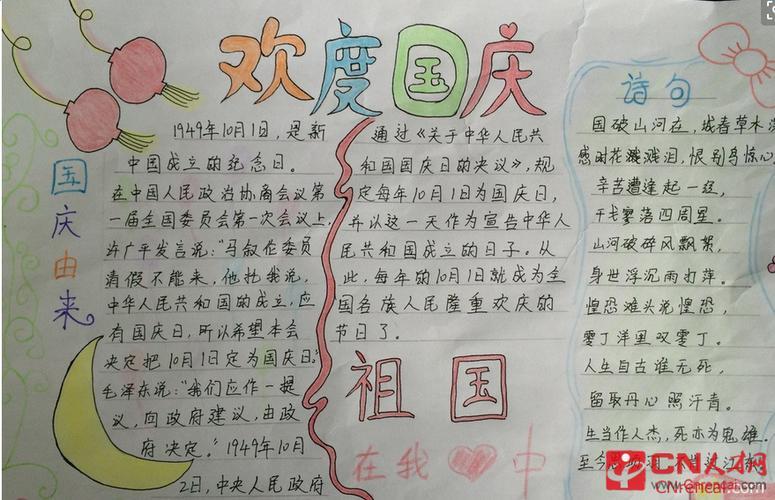 欢度国庆
国庆由来
1949年10月1日，是新
中国成立的纪念日。
在中国人民政治协商会议第
一届全国委员会第一次会议上，
许广平发言说：“马叙伦委员
请假不能来，他托我说，
中华人民共和国的成立，应
有国庆日，所以希望本会
决定把10月1日定为国庆日。”
毛泽东说：“我们应作一提
议，向政府建议，由政
府决定。”1949年10月
2日，中央人民政府
通过《关于中华人民共
和国国庆日的决议》，规
定每年10月1日为国庆日，
并以这一天作为宣告中华人
民共和国成立的日子。从
此，每年的10月1日就成为全
国各族人民隆重欢庆的
节日了。
祖国
在我❤中
诗句
国破山河在，城春草木
感时花溅泪，恨别鸟惊心
辛苦遭逢起一经，
干戈寥落四周星。
山河破碎风飘絮，
身世浮沉雨打萍。
惶恐滩头说惶恐，
零丁洋里叹零丁。
人生自古谁无死，
留取丹心照汗青。
生当作人杰，死亦为鬼雄。
至今
CN人才网
Cnrencai.com